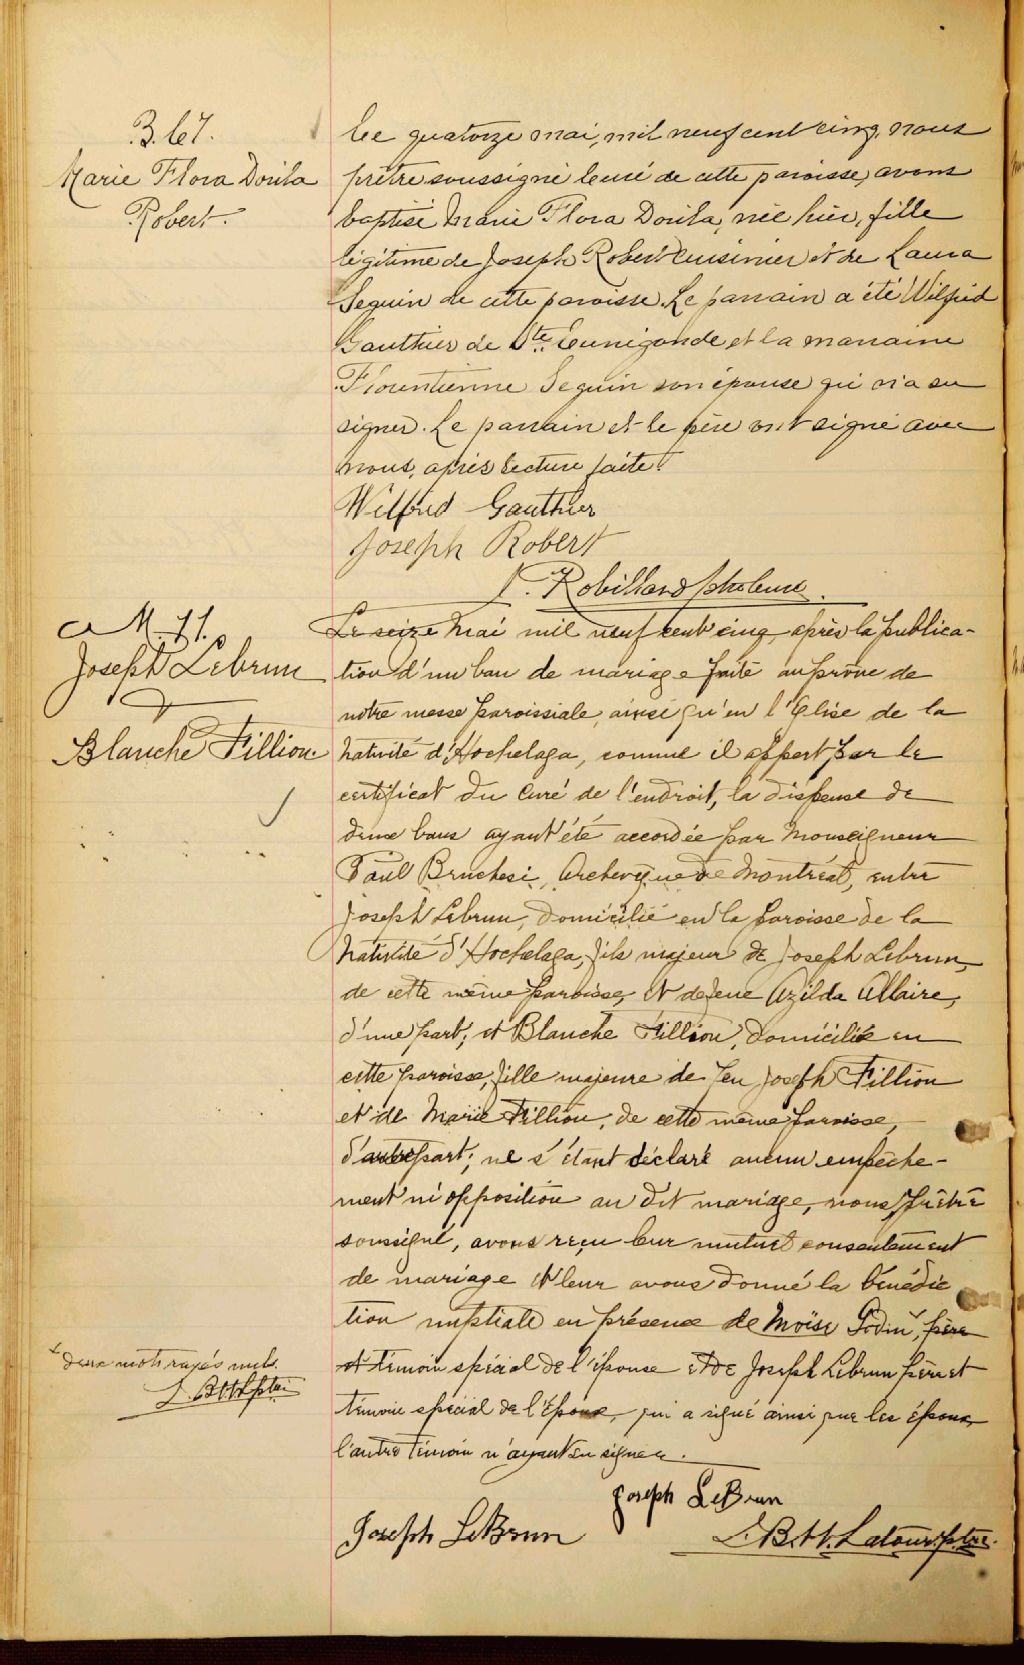 B. 67.
Marie Flora Dorila
Robert.
Le quatorze mai, mil neuf cent cinq, nous
prêtre soussigné Curé de cette paroisse, avons
baptisé Marie Flora Dorila, née hier, fille
légitime de Joseph Robert cuisinier et de Laura
Seguin de cette paroisse. Le parrain a été Wilfrid
Gauthier de Ste Cunégonde et la marraine
Seguin son épouse qui n'a su
signer. Le parrain et le père ont signé avec
nous, après lecture faite.
Wilfrid Gauthier
Joseph Robert
J. Robillard ptre Curé.
M. 71.
Joseph Lebrun
&
Blanche Fillion.
Le seize Mai mil neuf cent cinq, après la publica-
tion d'un ban de mariage faite au prône de
notre messe paroissiale, ainsi qu'en l'Eglise de la
Nativité d'Hochelaga, comme il appert par le
certificat du Curé de l'endroit, la dispense de
deux bans ayant été accordée par Monseigneur
Paul Bruchesi, Archevêque de Montréal, entre
Joseph Lebrun, domicilié en la paroisse de la
Nativité d'Hochelaga, fils majeur de Joseph Lebrun,
de cette même paroisse, et de feue Azilda Allaire,
d'une part; et Blanche Fillion, domiciliée en
cette paroisse, fille majeure de feu Joseph Fillion
et de Marie Fillion, de cette même paroisse,
d'autre part; ne s'étant déclaré aucun empêche-
ment ni opposition au dit mariage, nous, prêtre
soussigné, avons reçu leur mutuel consentement
de mariage et leur avons donné la bénédic
tion nuptiale en présence de Moïse Godin, père
et témoin spécial de l'épouse et de Joseph Lebrun père et
témoin spécial de l'époux, qui a signé ainsi que les époux,
l'autre témoin n'ayant su signer.
x deux mots rayés nuls.
L. B. H. L. ptre
Joseph LeBrun
Joseph LeBrun
L. B. H. Latour, ptre.